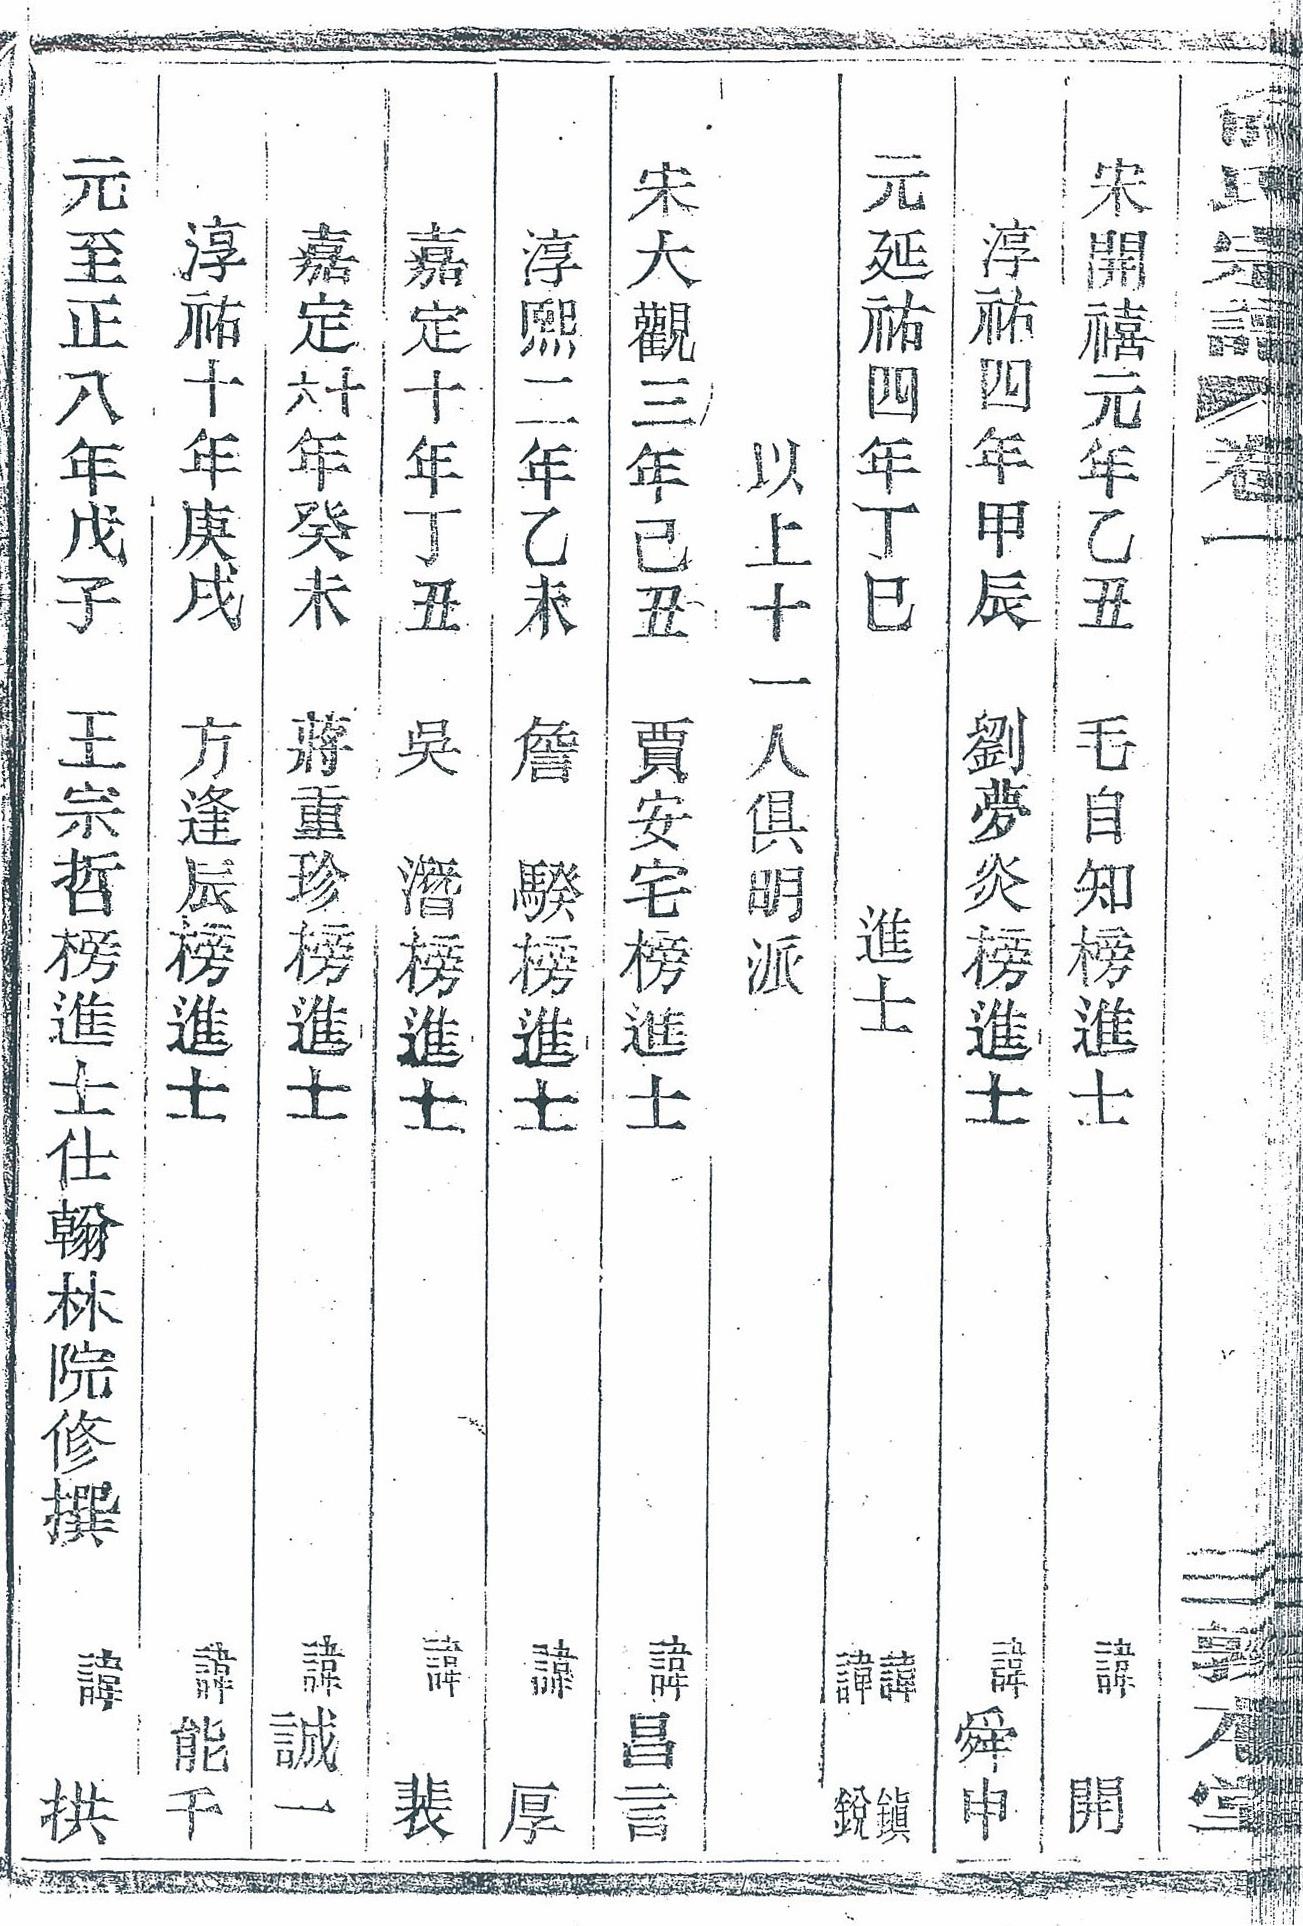 氏宗譜 卷一 三 敦 堂
宋開禧元年乙丑 毛自知榜進士 諱 開
淳祐四年甲辰 劉夢炎榜進士 諱舜申
元延祐四年丁巳 進士 諱 鎮 諱 銳
以上十一人俱明派
宋大觀三年己丑 賈安宅榜進士 諱昌言
淳熙二年乙未 詹 騤榜進士 諱 厚
嘉定十年丁丑 吳 潛榜進士 諱 裴
嘉定十六年癸未 蔣重珍榜進士 諱誠一
淳祐十年庚戌 方逢辰榜進士 諱能千
元至正八年戊子 王宗哲榜進士仕翰林院修撰 諱 拱